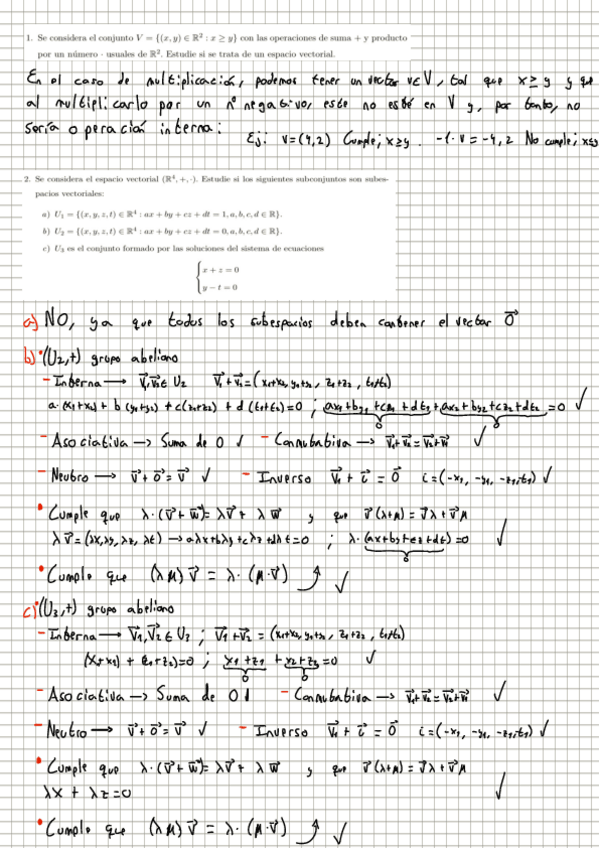 1. Se considera el conjunto V = {(x, y) ∈ ℝ² : x ≥ y} con las operaciones de suma + y producto
por un número · usuales de ℝ². Estudie si se trata de un espacio vectorial.
En el caso de multiplicación, podemos tener un vector v∈V, tal que x≥y y que
al multiplicarlo por un nº negativo, este no esté en V y, por tanto, no
sería operación interna: Ej: v=(4,2) Cumple; x≥y. -1·v = -4,2 No cumple; x≤y
2. Se considera el espacio vectorial (ℝ⁴, +, ·). Estudie si los siguientes subconjuntos son subes-
pacios vectoriales:
a) U₁ = {(x, y, z, t) ∈ ℝ⁴ : ax + by + cz + dt = 1, a, b, c, d ∈ ℝ}.
b) U₂ = {(x, y, z, t) ∈ ℝ⁴ : ax + by + cz + dt = 0, a, b, c, d ∈ ℝ}.
c) U₃ es el conjunto formado por las soluciones del sistema de ecuaciones
x + z = 0
y − t = 0
a) NO, ya que todos los subespacios deben contener el vector 0⃗
b) •(U₂,+) grupo abeliano
- Interna → v⃗₁,v⃗₂ ∈ U₂ v⃗₁+v⃗₂ = (x₁+x₂, y₁+y₂, z₁+z₂, t₁+t₂)
a·(x₁+x₂) + b(y₁+y₂) + c(z₁+z₂) + d(t₁+t₂)=0 ; ax₁+by₁+cz₁+dt₁+ax₂+by₂+cz₂+dt₂=0 ✓
0 0
- Asociativa → Suma de 0 ✓ - Conmutativa → v⃗₁+v⃗₂ = v⃗₂+v⃗₁ ✓
- Neutro → v⃗+0⃗=v⃗ ✓ - Inverso v⃗₁ + i⃗ = 0⃗ i=(-x₁, -y₁, -z₁,-t₁) ✓
• Cumple que λ·(v⃗+w⃗)= λv⃗+ λw⃗ y que v⃗(λ+μ) = v⃗λ+v⃗μ
λv⃗=(λx,λy, λz, λt) → aλx+bλy+cλz+dλt=0 ; λ·(ax+by+cz+dt)=0 ✓
0
• Cumple que (λμ)v⃗ = λ·(μ·v⃗) ✓
c) •(U₃,+) grupo abeliano
- Interna → v⃗₁,v⃗₂ ∈ U₃ ; v⃗₁+v⃗₂ = (x₁+x₂, y₁+y₂, z₁+z₂, t₁+t₂)
(x₁+x₂) + (z₁+z₂)=0 ; x₁+z₁ + x₂+z₂=0 ✓
0 0
- Asociativa → Suma de 0 ✓ - Conmutativa → v⃗₁+v⃗₂ = v⃗₂+v⃗₁ ✓
- Neutro → v⃗+0⃗=v⃗ ✓ - Inverso v⃗₁ + i⃗ = 0⃗ i=(-x₁, -y₁, -z₁,-t₁) ✓
• Cumple que λ·(v⃗+w⃗)= λv⃗+ λw⃗ y que v⃗(λ+μ) = v⃗λ+v⃗μ
λx + λz=0 ✓
• Cumple que (λμ)v⃗ = λ·(μ·v⃗) ✓